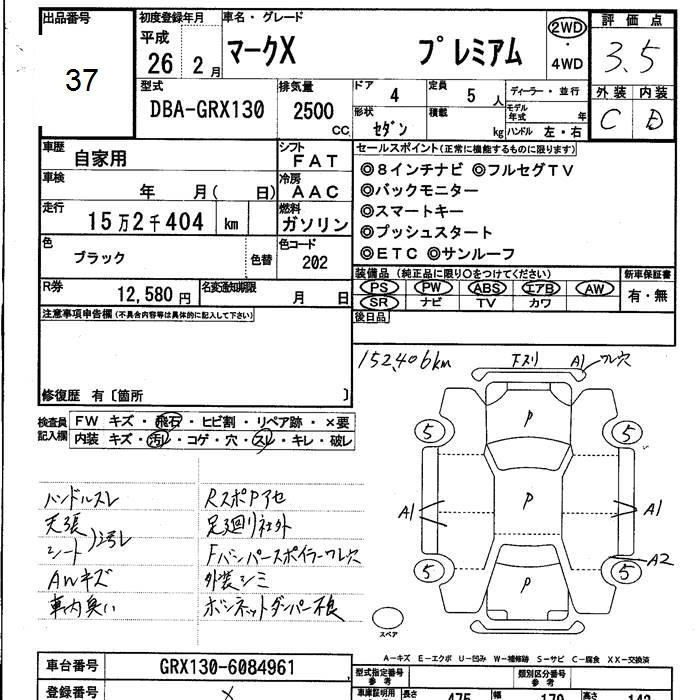 出品番号
37
初度登録年月
平成
26 2月
車名・グレード
マークX プレミアム
2WD
・
4WD
評価点
3.5
外装 内装
C D
型式
DBA-GRX130
排気量
2500
CC
ドア 4
定員 5 人
形状 セダン
積載 kg
ディーラー・並行
モデル年式 年
ハンドル 左・右
車歴
自家用
シフト
FAT
車検
年 月( 日)
冷房
AAC
走行
15万2千404 km
燃料
ガソリン
色
ブラック
色替
色コード
202
R券
12,580円
名変通知期限
月 日
セールスポイント(正常に機能するものに限ります)
◎8インチナビ ◎フルセグTV
◎バックモニター
◎スマートキー
◎プッシュスタート
◎ETC ◎サンルーフ
装備品 (純正品に限り○をつけてください)
PS PW ABS エアB AW
SR ナビ TV カワ
新車保証書
有・無
後日品
注意事項申告欄(不具合内容等は具体的に記入して下さい)
修復歴 有〔箇所 〕
検査員記入欄
FW キズ・飛石・ヒビ割・リペア跡・×要
内装 キズ・汚レ・コゲ・穴・スレ・キレ・破レ
ハンドルスレ
天張
シート)汚レ
AWキズ
車内臭い
RスポPアセ
足廻り社外
Fバンパースポイラーワレ穴
外装シミ
ボンネットダンパー不良
152,406km
Fスリ A1 ワレ穴
P
5 5
P
A1 A1
A2
5 5
P
スペア
A-キズ E-エクボ U-凹み W-補修跡 S-サビ C-腐食 XX-交換済
車台番号
GRX130-6084961
登録番号
型式指定番号
参考
類別区分番号
参考
車庫証明用
長さ 475 幅 179 高さ 143